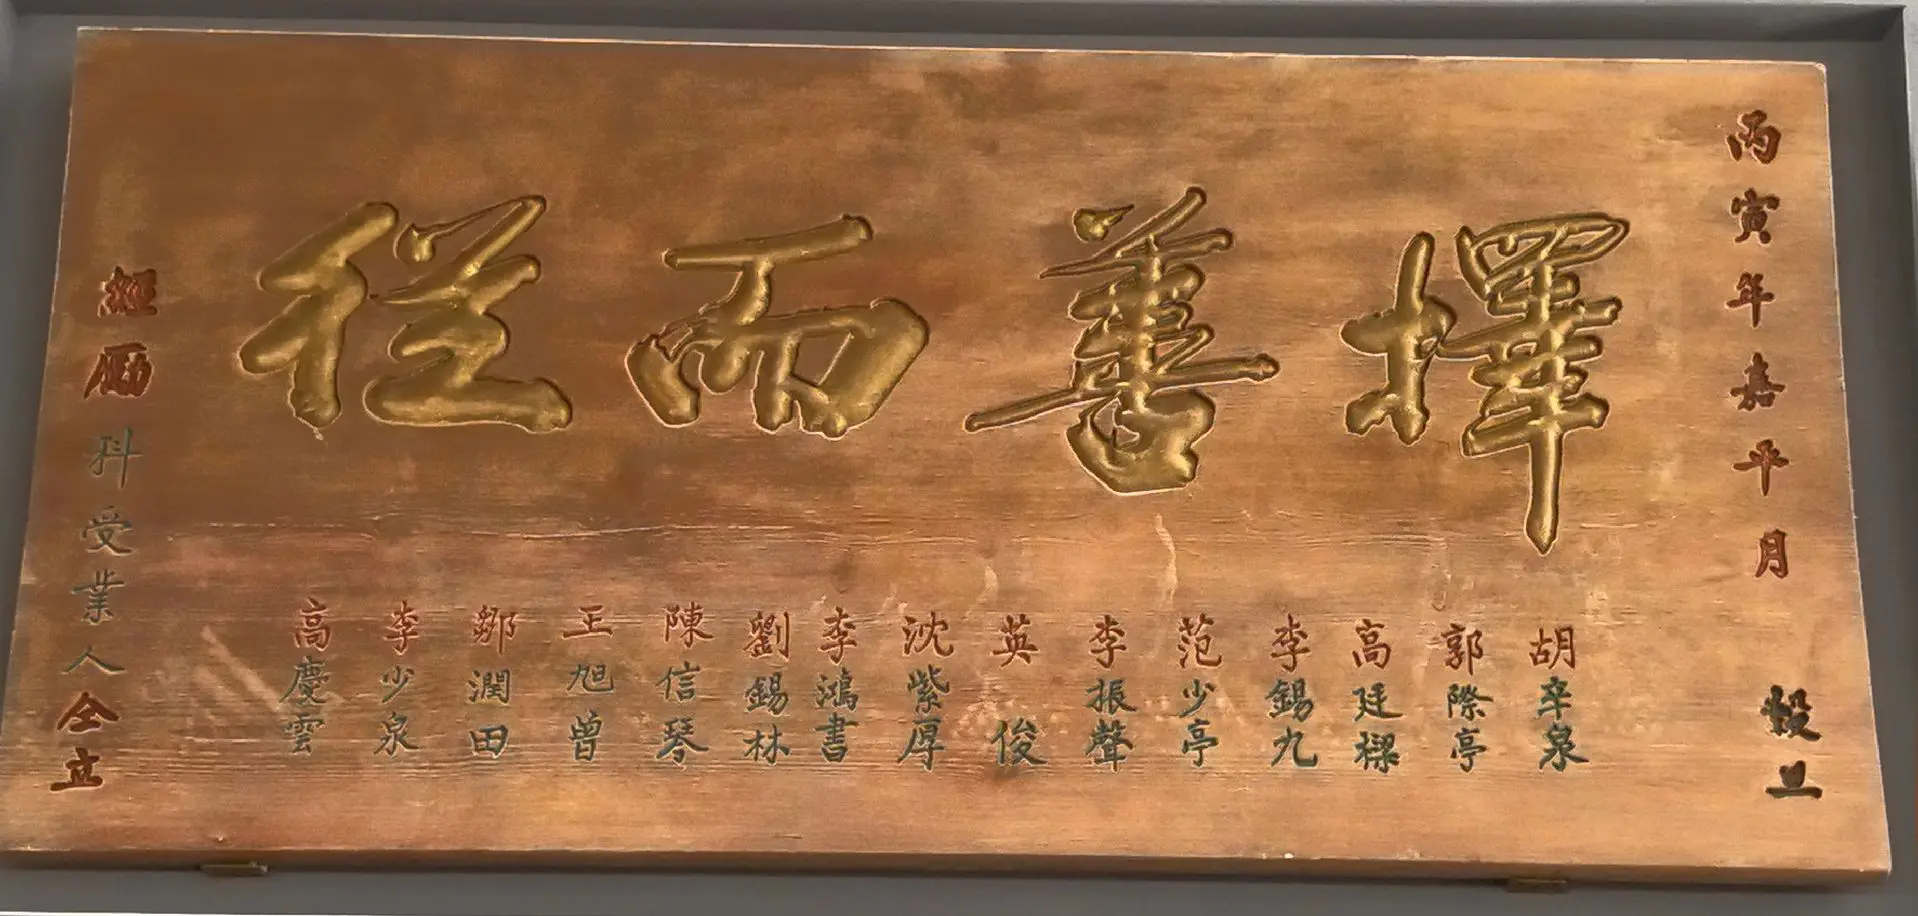 丙寅年嘉平月
穀旦
擇善而從
胡辛泉
郭際亭
高廷樑
李錫九
范少亭
李振聲
英俊
沈紫厚
李鴻書
劉錫林
陳信琴
王旭曾
鄒潤田
李少泉
高慶雲
經勵科受業人仝立